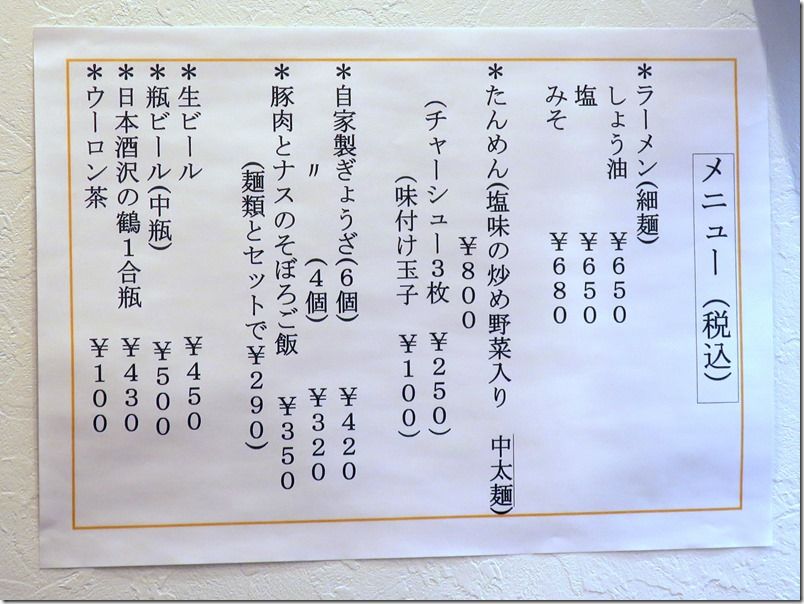 メニュー（税込）
＊ラーメン(細麺)
しょう油　￥６５０
塩　￥６５０
みそ　￥６８０
＊たんめん(塩味の炒め野菜入り　中太麺)
￥８００
(チャーシュー３枚　￥２５０)
(味付け玉子　￥１００)
＊自家製ぎょうざ(６個)　￥４２０
〃　(４個)　￥３２０
＊豚肉とナスのそぼろご飯　￥３５０
(麺類とセットで￥２９０)
＊生ビール　￥４５０
＊瓶ビール(中瓶)　￥５００
＊日本酒沢の鶴１合瓶　￥４３０
＊ウーロン茶　￥１００